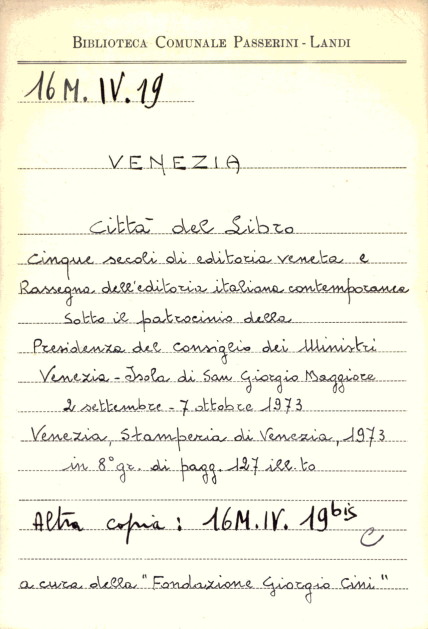 BIBLIOTECA COMUNALE PASSERINI - LANDI
16 M. IV. 19
VENEZIA
Città del Libro
Cinque secoli di editoria veneta e
Rassegna dell'editoria italiana contemporanea
Sotto il patrocinio della
Presidenza del Consiglio dei Ministri
Venezia - Isola di San Giorgio Maggiore
2 settembre - 7 ottobre 1973
Venezia, Stamperia di Venezia, 1973
in 8° gr. di pagg. 127 ill.to
Altra copia : 16 M. IV. 19 bis
C
a cura della "Fondazione Giorgio Cini"